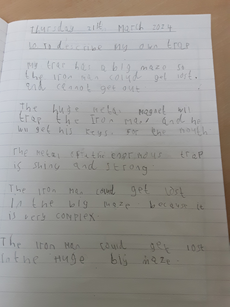 Thursday 21th March 2024
my own trap
my trap has a big maze so
the iron man could get lost.
and cannot get out
The huge metal magnet will
trap the iron man and he
The metal
is shing and strong
The iron man coud get lost
In the big maze because it
is very complex
The iron man cowd get lost
in the huge big maze